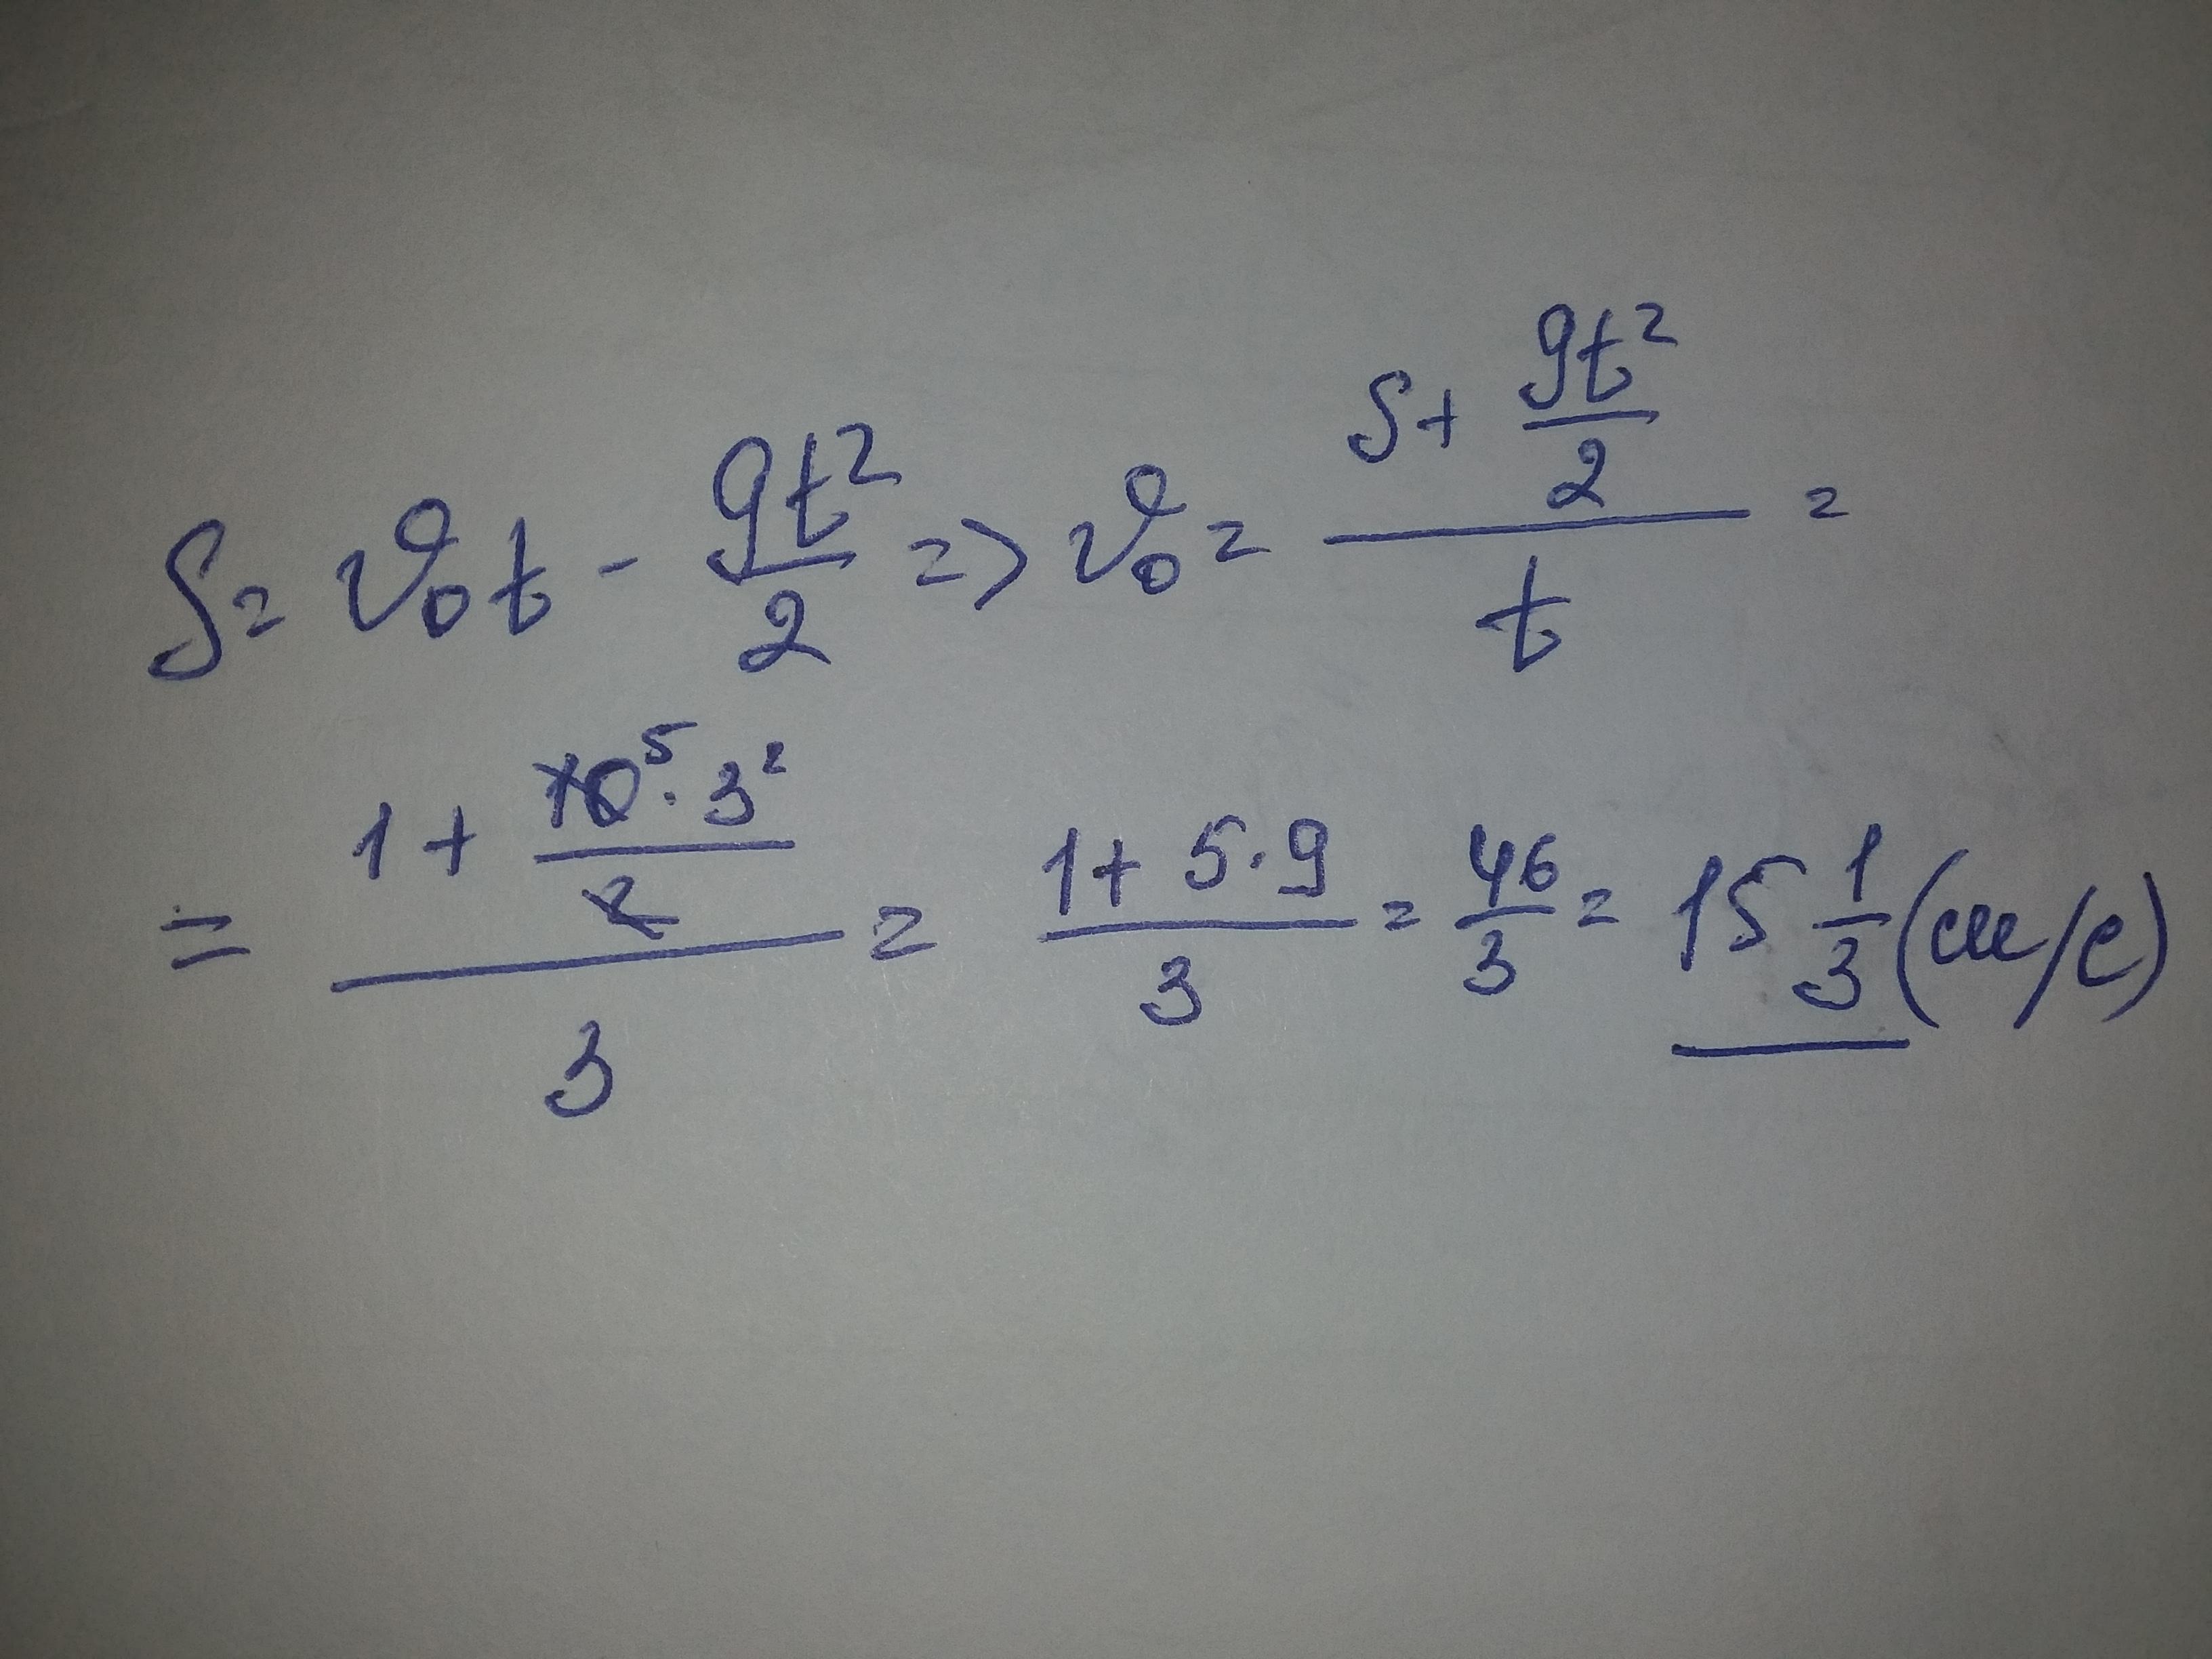 S = v₀t - gt²/2 => v₀ = (S + gt²/2)/t =
= (1 + 10⁵·3²/2)/3 = (1 + 5·9)/3 = 46/3 = 15 1/3 (м/с)